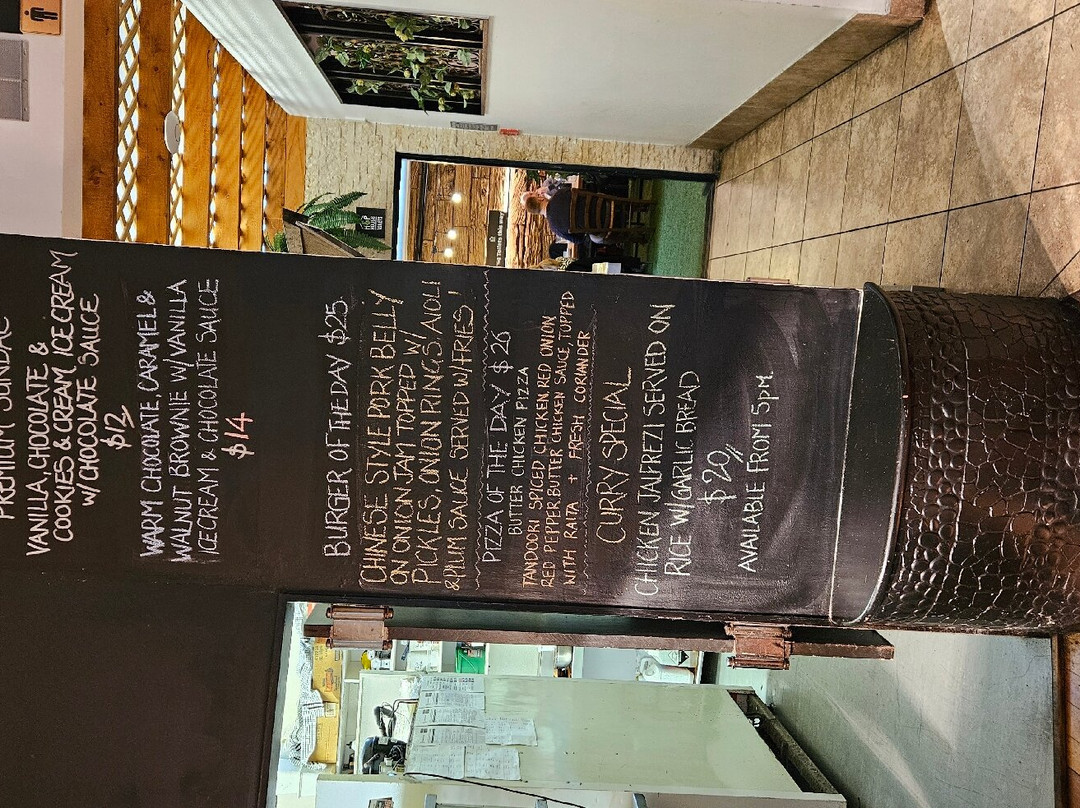 PREMIUM SUNDAE
VANILLA, CHOCOLATE &
COOKIES & CREAM ICECREAM
W/ CHOCOLATE SAUCE
$12
WARM CHOCOLATE, CARAMEL &
WALNUT BROWNIE W/ VANILLA
ICECREAM & CHOCOLATE SAUCE
$14
BURGER OF THE DAY $25.
CHINESE STYLE PORK BELLY
ON ONION JAM TOPPED W/
PICKLES, ONION RINGS, AIOLI
& PLUM SAUCE SERVED W/FRIES!
PIZZA OF THE DAY $26
BUTTER CHICKEN PIZZA
TANDOORI SPICED CHICKEN, RED ONION
RED PEPPER, BUTTER CHICKEN SAUCE, TOPPED
WITH RAITA + FRESH CORIANDER
CURRY SPECIAL
CHICKEN JALFREZI SERVED ON
RICE W/GARLIC BREAD
$20//
AVAILABLE FROM 5pm.